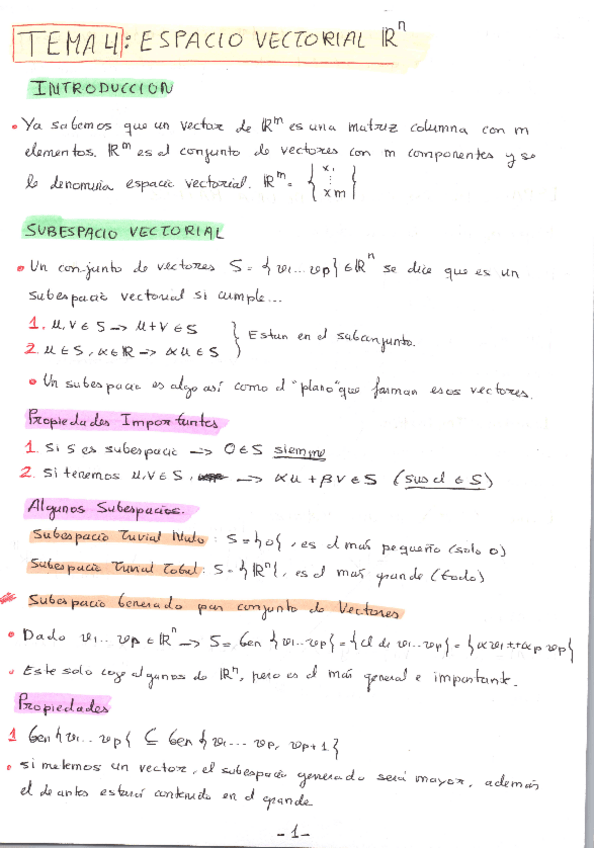 TEMA 4: ESPACIO VECTORIAL ℝⁿ
INTRODUCCION
• Ya sabemos que un vector de ℝᵐ es una matriz columna con m
elementos. ℝᵐ es el conjunto de vectores con m componentes y se
le denomina espacio vectorial. ℝᵐ = { x₁ ⋮ xm }
SUBESPACIO VECTORIAL
• Un conjunto de vectores S = {v1...vp} ∈ ℝⁿ se dice que es un
subespacio vectorial si cumple...
1. u,v ∈ S → u+v ∈ S
2. u ∈ S, α ∈ ℝ → αu ∈ S } Estan en el subconjunto.
• Un subespacio es algo así como el "plano" que forman esos vectores.
Propiedades Importantes
1. Si S es subespacio → 0 ∈ S siempre
2. Si tenemos u,v ∈ S, → αu + βv ∈ S (sus cl ∈ S)
Algunos Subespacios.
Subespacio Trivial Nulo: S = {0}, es el más pequeño (solo 0)
Subespacio Trivial Total: S = {ℝⁿ}, es el más grande (todo)
Subespacio Generado por conjunto de Vectores
• Dado v1...vp ∈ ℝⁿ → S = Gen {v1...vp} = {cl de v1...vp} = {αv1+..+αp vp}
• Este solo coge algunos de ℝⁿ, pero es el más general e importante.
Propiedades
1 Gen{v1...vp} ⊆ Gen{v1...vp, vp+1}
• Si metemos un vector, el subespacio generado será mayor, además
el de antes estará contenido en el grande
-1-